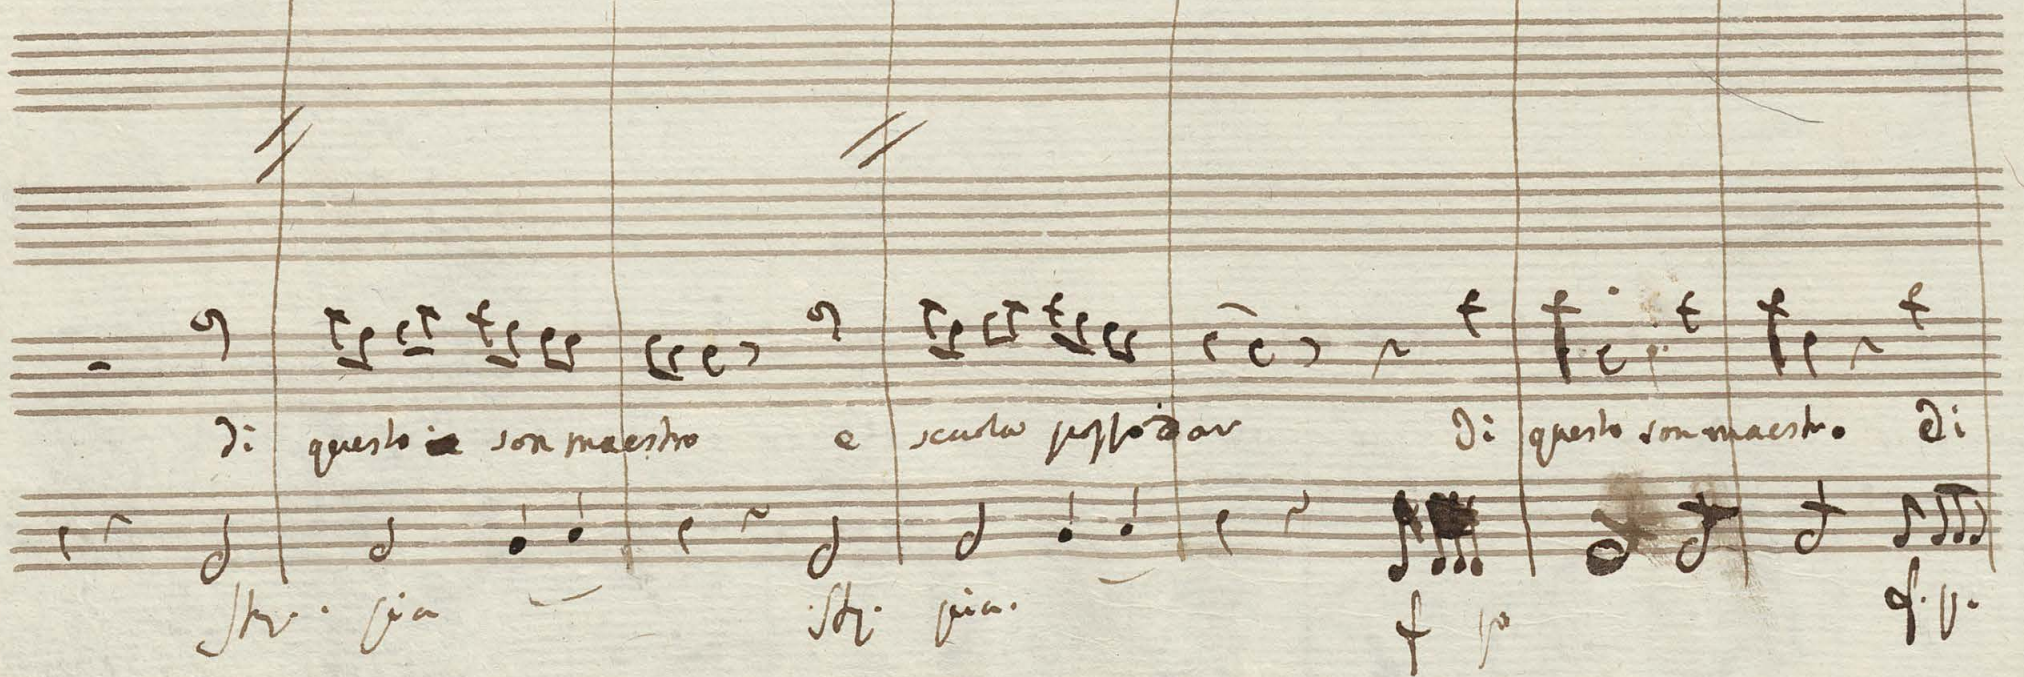 di questo son maestro e scuola posso dar di questo son maestro di
Stz. pia Stz. pia. f p f. p.